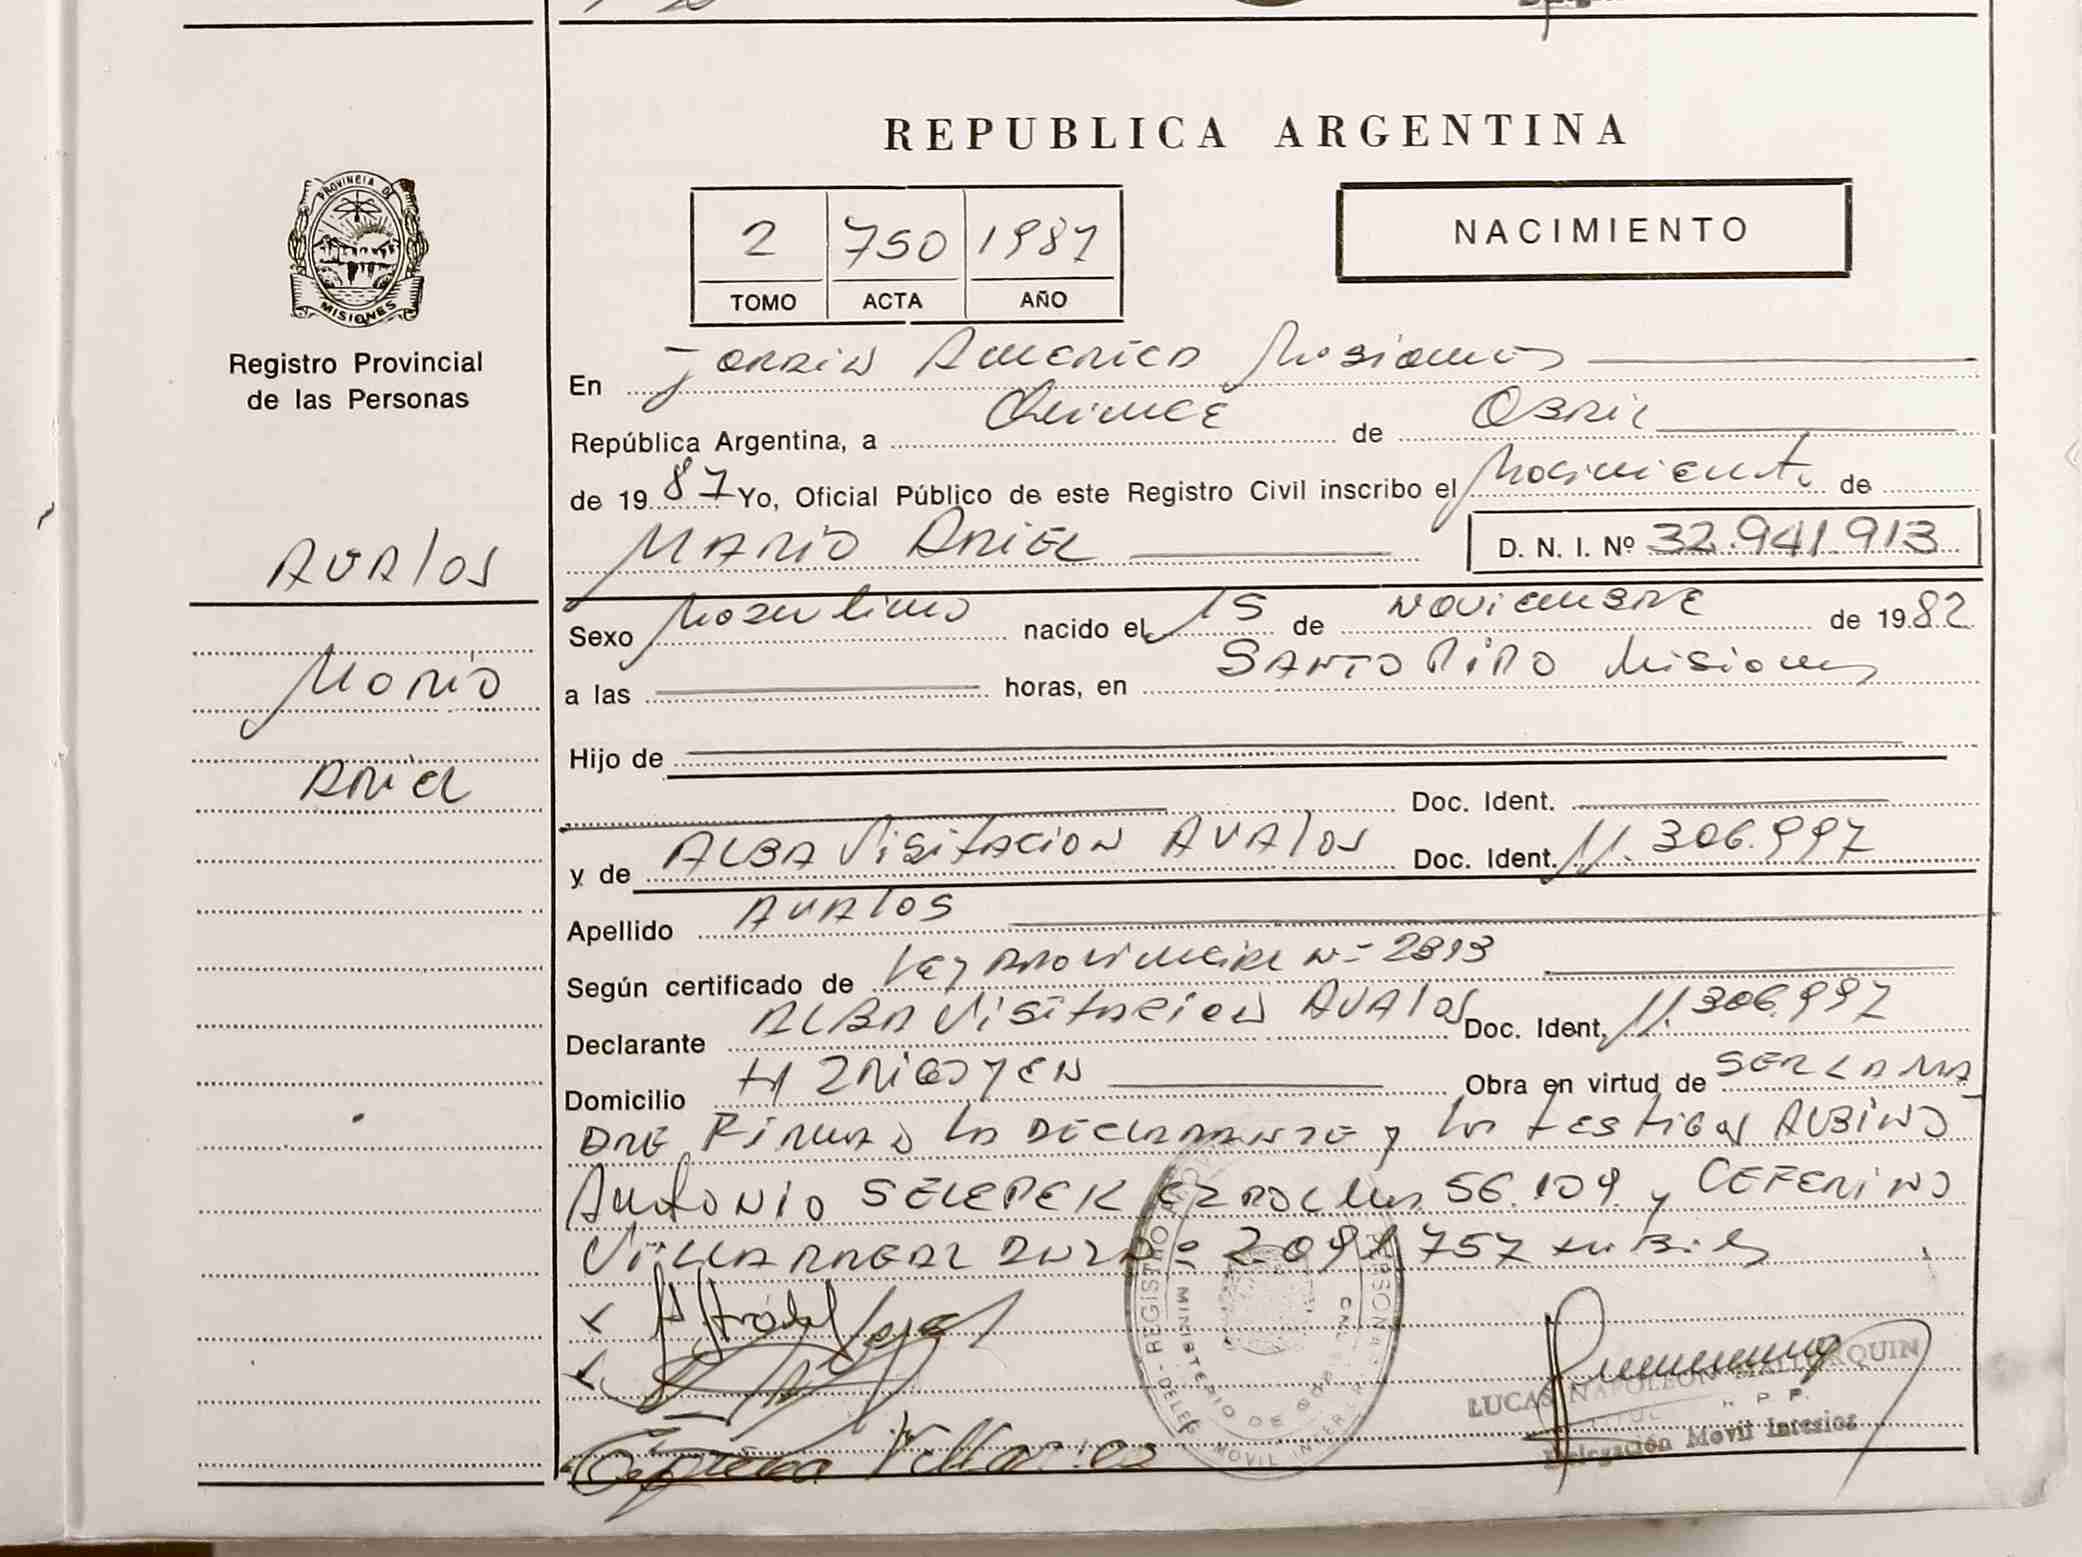 REPUBLICA ARGENTINA
NACIMIENTO
2 750 1987
TOMO ACTA AÑO
PROVINCIA DE
MISIONES
Registro Provincial
de las Personas
AVALOS
Mario
Ariel
En Jardin America Misiones
República Argentina, a Quince de Abril
de 1987 Yo, Oficial Público de este Registro Civil inscribo el Nacimiento de
MARIO ARIEL D. N. I. Nº 32.941.913
Sexo Masculino nacido el 15 de NOVIEMBRE de 1982
a las horas, en SANTO PIPO Misiones
Hijo de
Doc. Ident.
y de ALBA Visitacion AVALOS Doc. Ident. 11.306.997
Apellido AVALOS
Según certificado de Ley Provincial Nº 2313
Declarante ALBA Visitacion AVALOS Doc. Ident. 11.306.997
Domicilio H IRIGOYEN Obra en virtud de SER LA MA
DRE Firman la DECLARANTE y los testigos ALBINO
Antonio SELEPEK 56.109 y CEFERINO
VILLARREAL 2091757
REGISTRO
MINISTERIO DE
LUCAS NAPOLEON
Delegación Movil Interior